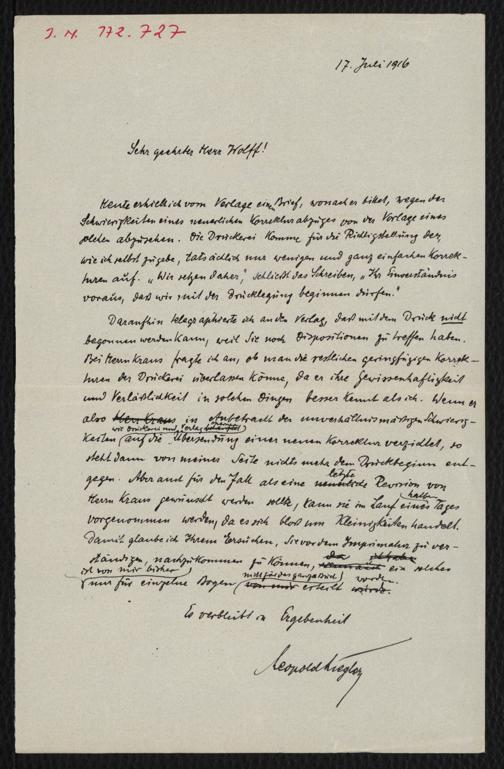 J. N. 172.727
17. Juli 1916
Sehr geehrter Herr Wolff!
Heute erhielt ich vom Verlage einen Brief, wonach er bittet, wegen der
Schwierigkeiten eines neuerlichen Korrekturabzuges von der Vorlage eines
solchen abzusehen. Die Druckerei komme für die Richtigstellung der,
wie ich selbst zugebe, tatsächlich nur wenigen und ganz einfachen Korrek-
turen auf. „Wir setzen daher," schließt das Schreiben, „Ihr Einverständnis
voraus, daß wir mit der Drucklegung beginnen dürfen."
Daraufhin telegraphierte ich an den Verlag, daß mit dem Druck nicht
begonnen werden kann, weil Sie noch Dispositionen zu treffen haben.
Bei Herrn Kraus fragte ich an, ob man die restlichen geringfügigen Korrek-
turen der Druckerei überlassen könne, da er ihre Gewissenhaftigkeit
und Verläßlichkeit in solchen Dingen besser kennt als ich. Wenn er
also Herr Kraus in Anbetracht der unverhältnismäßigen Schwierig-
wie Druckerei und Verlag
keiten auf die Übersendung einer neuen Korrektur verzichtet, so
steht dann von meiner Seite nichts mehr dem Druckbeginn ent-
letzte
gegen. Aber auch für den Fall als eine Revision von
Herrn Kraus gewünscht werden sollte, kann sie im Lauf eines halben Tages
vorgenommen werden, da es sich bloß um Kleinigkeiten handelt.
Damit glaube ich Ihrem Ersuchen, Sie vor dem Imprimatur zu ver-
ständigen, nachzukommen zu können, da ein solches
ist von mir bisher
nur für einzelne Bogen, nicht für das ganze Buch erteilt worden.
Es verbleibt in Ergebenheit
Leopold Liegler